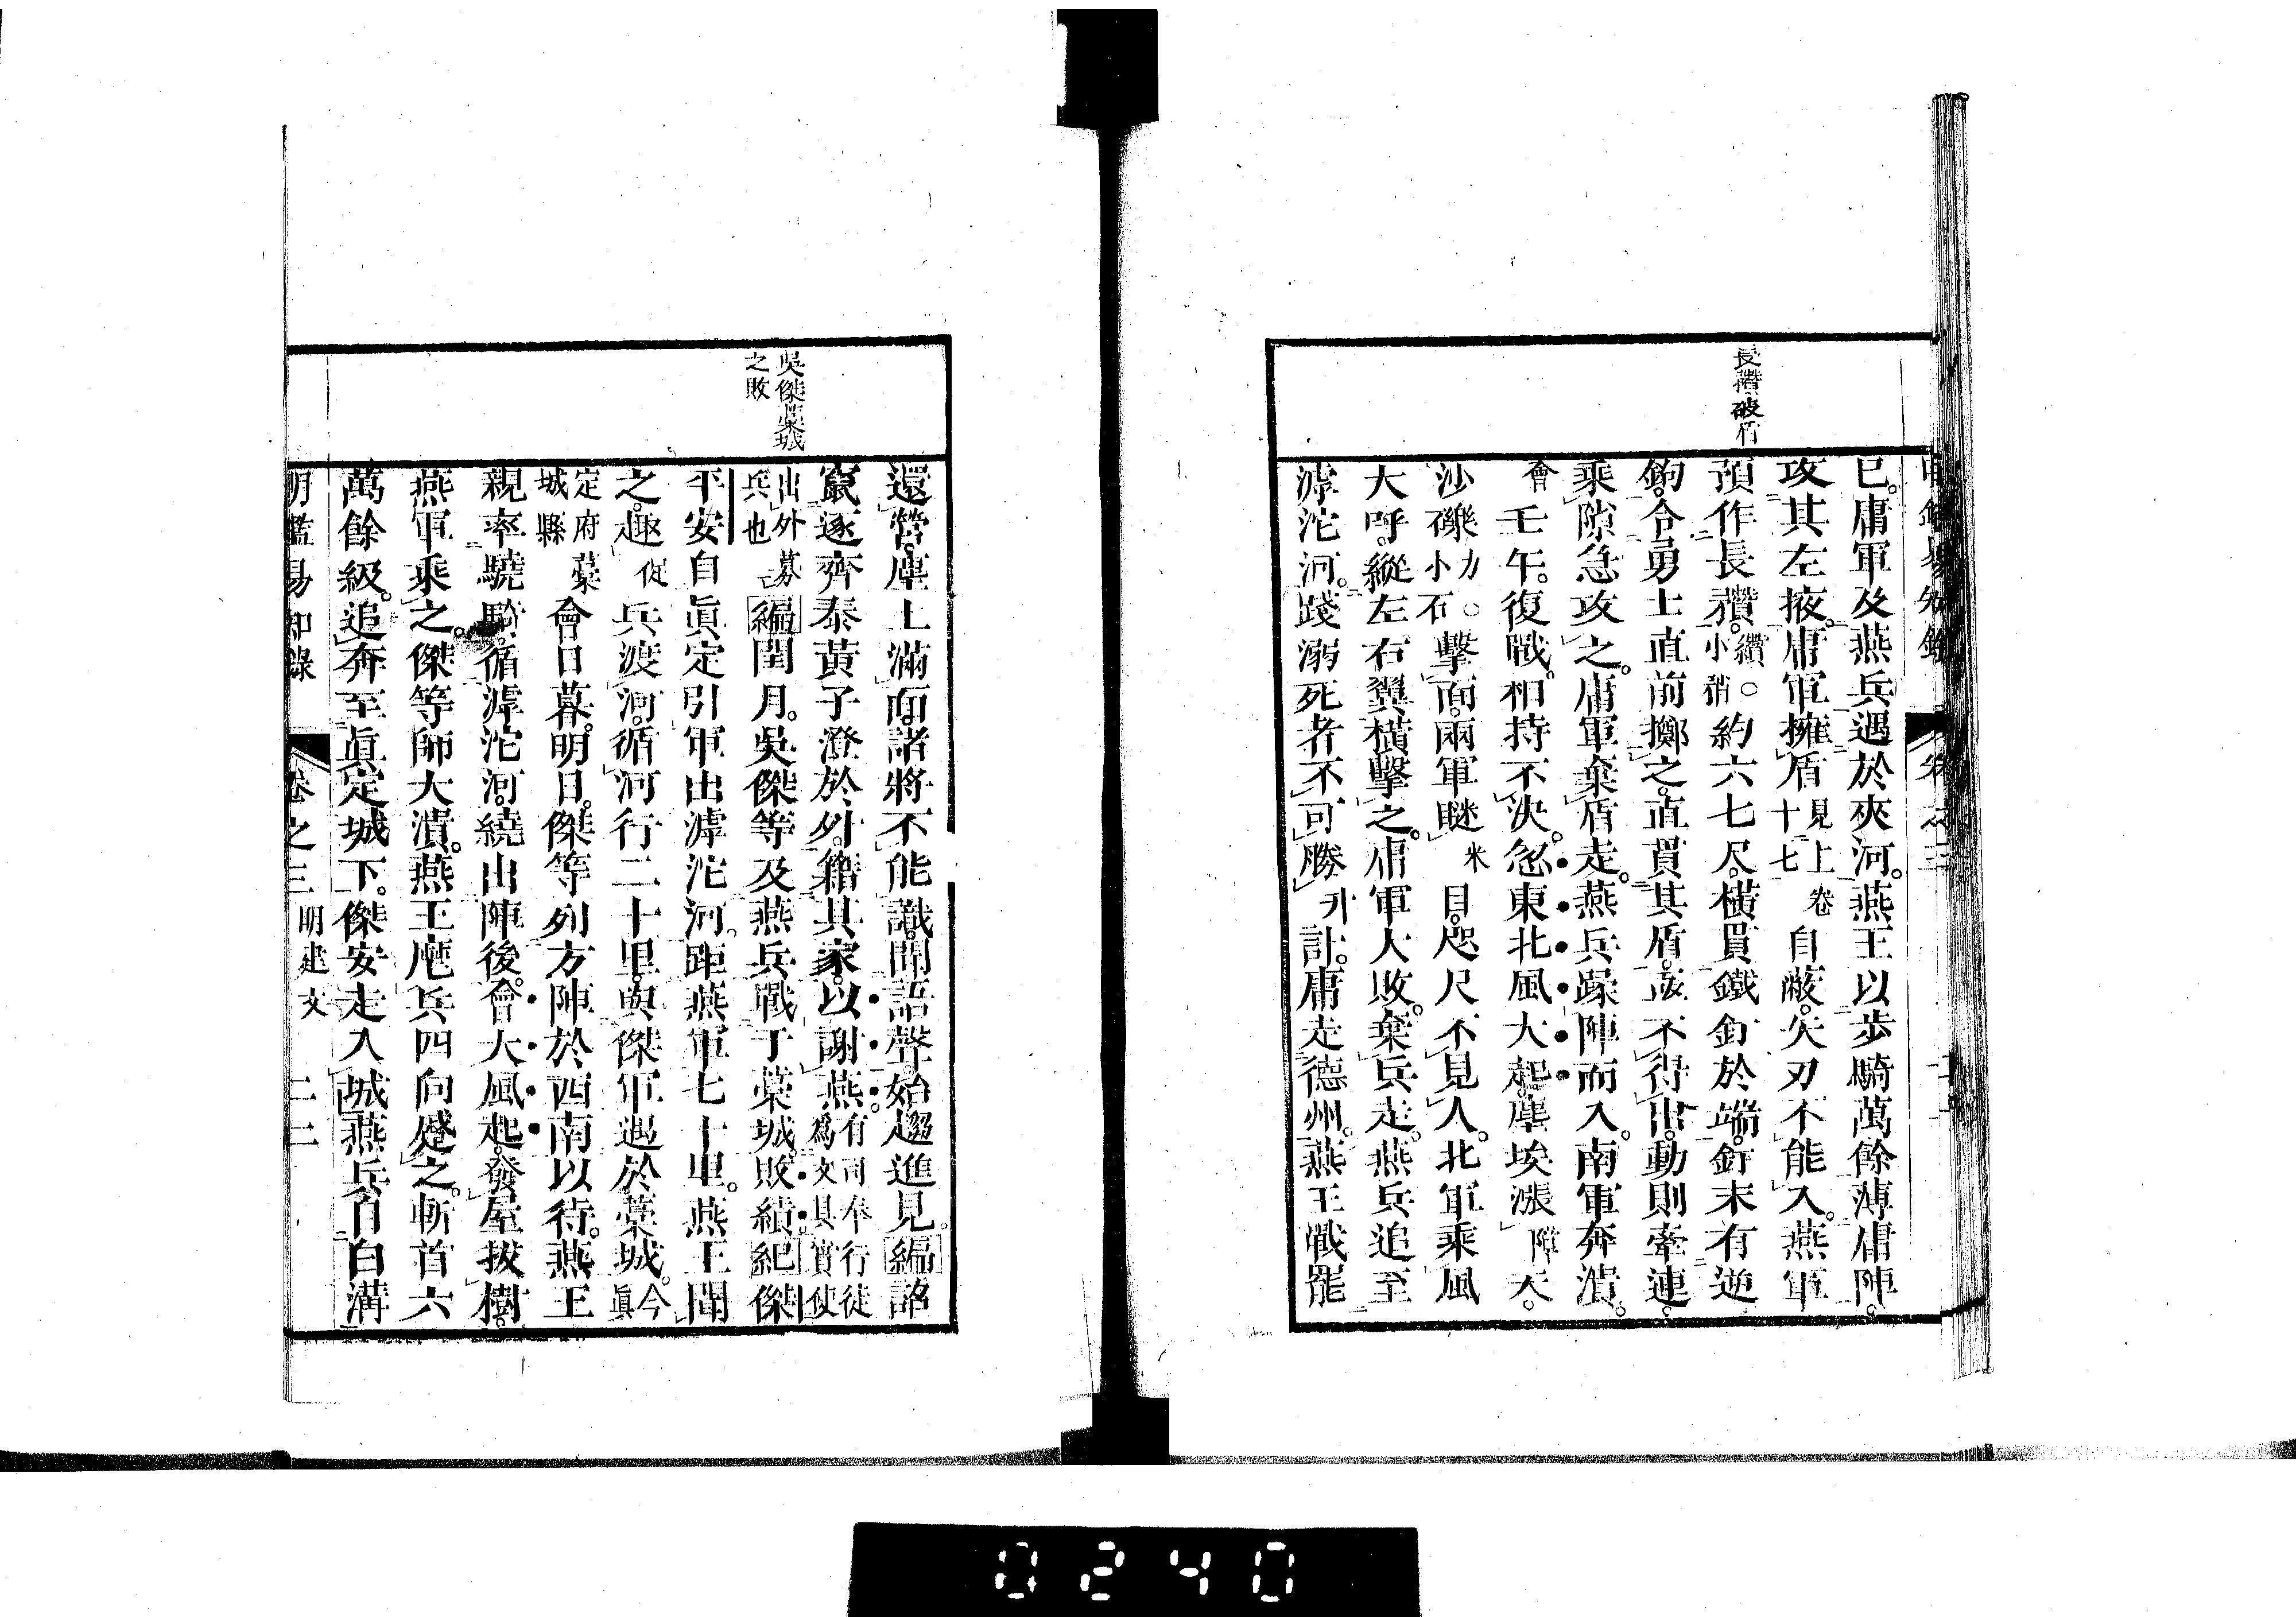 長攢破盾
已。庸軍及燕兵遇於夾河。燕王以步騎萬餘薄庸陣。
攻其左掖。庸軍擁盾見上卷十七自蔽。矢刃不能入。燕軍
預作長攢。纘。○小矟約六七尺。橫貫鐵釘於端。釘末有逆
鉤。令勇士直前擲之。直貫其盾。亟不得出。動則牽連。
乘隙急攻之。庸軍棄盾走。燕兵蹂陣而入。南軍奔潰。
會壬午。復戰。相持不決。忽東北風大起。塵埃漲障天。
沙礫力。○小石擊面。兩軍瞇米目。咫尺不見人。北軍乘風
大呼。縱左右翼橫擊之。庸軍大敗。棄兵走。燕兵追至
滹沱河。踐溺死者不可勝升計。庸走德州。燕王戰罷
吳傑藁城
之敗
還營。塵土滿面。諸將不能識。聞語聲。始趨進見。編詔
竄逐齊泰黃子澄於外。籍其家。以謝燕。有司奉行徒爲文具實使
出外募兵也編閏月。吳傑等及燕兵戰于藁城。敗績。紀傑
平安自眞定引軍出滹沱河。距燕軍七十里。燕王聞
之。趣促兵渡河。循河行二十里。與傑軍遇於藁城。今眞
定府藁城縣會日暮。明日。傑等列方陣於西南以待。燕王
親率驍騎。循滹沱河。繞出陣後。會大風起。發屋拔樹。
燕軍乘之。傑等師大潰。燕王麾兵四向蹙之。斬首六
萬餘級。追奔至眞定城下。傑安走入城。燕兵自白溝
明鑑易知錄 卷之三 明建文 二二
0240